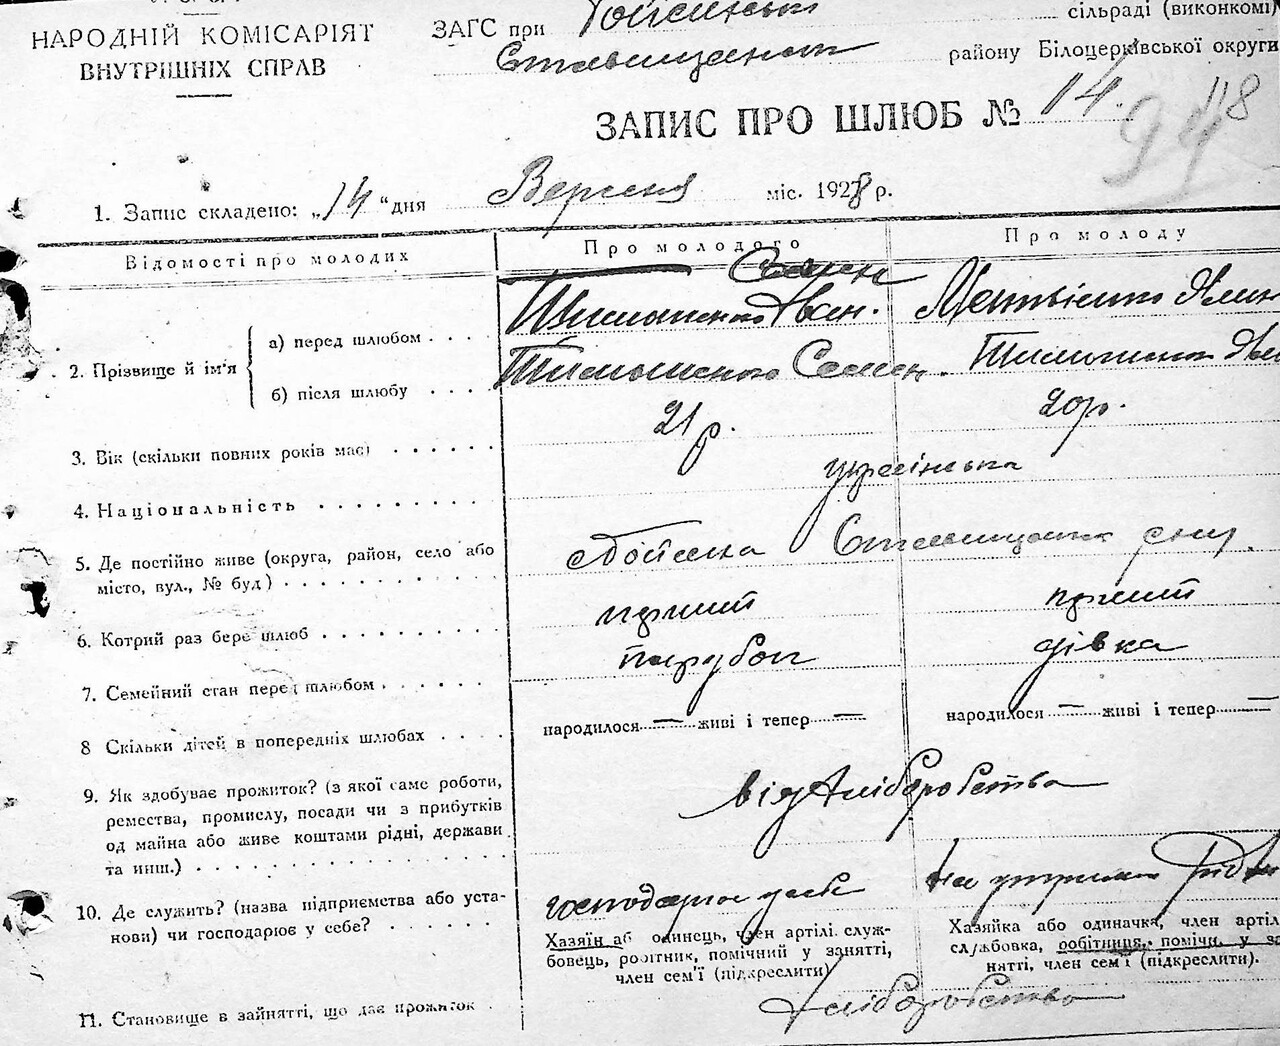 НАРОДНІЙ КОМІСАРІЯТ
ВНУТРІШНІХ СПРАВ
ЗАГС при сільраді (виконкомі)
району Білоцерківської округи
ЗАПИС ПРО ШЛЮБ № 14.
118
94
1. Запис складено: „14 “ дня Вересня міс. 1928 р.
Відомості про молодих
Про молодого
Про молоду
Семен
2. Прізвище й ім'я
а) перед шлюбом . . . .
Тимошенко Іван.
б) після шлюбу . . .
Тимошенко Семен.
Тимошенко
3. Вік (скільки повних років має) . . . . . .
21 р.
20 р.
4. Національність . . . . . . . . .
українська
5. Де постійно живе (округа, район, село або
місто, вул., № буд) . . . . . . . . . . .
6. Котрий раз бере шлюб . . . . . . . . .
перший
перший
7. Семейний стан перед шлюбом . . . . . .
парубок
дівка
8 Скільки дітей в попередніх шлюбах . . . .
народилося — живі і тепер —
народилося — живі і тепер —
9. Як здобуває прожиток? (з якої саме роботи,
ремества, промислу, посади чи з прибутків
од майна або живе коштами рідні, держави
та инш.) . . . . . . . . . . . . . . .
від хліборобства
10. Де служить? (назва підприємства або уста-
нови) чи господарює у себе? . . . . . .
на утриманні
Хазяїн аб одинець, член артілі. служ-
бовець, робітник, помічний у занятті,
член сем'ї (підкреслити)
Хазяйка або одиначка, член артіл
службовка, робітниця, помічн. у за
нятті, член сем'ї (підкреслити).
П. Становище в зайнятті, що дає прожиток .
Хліборобство